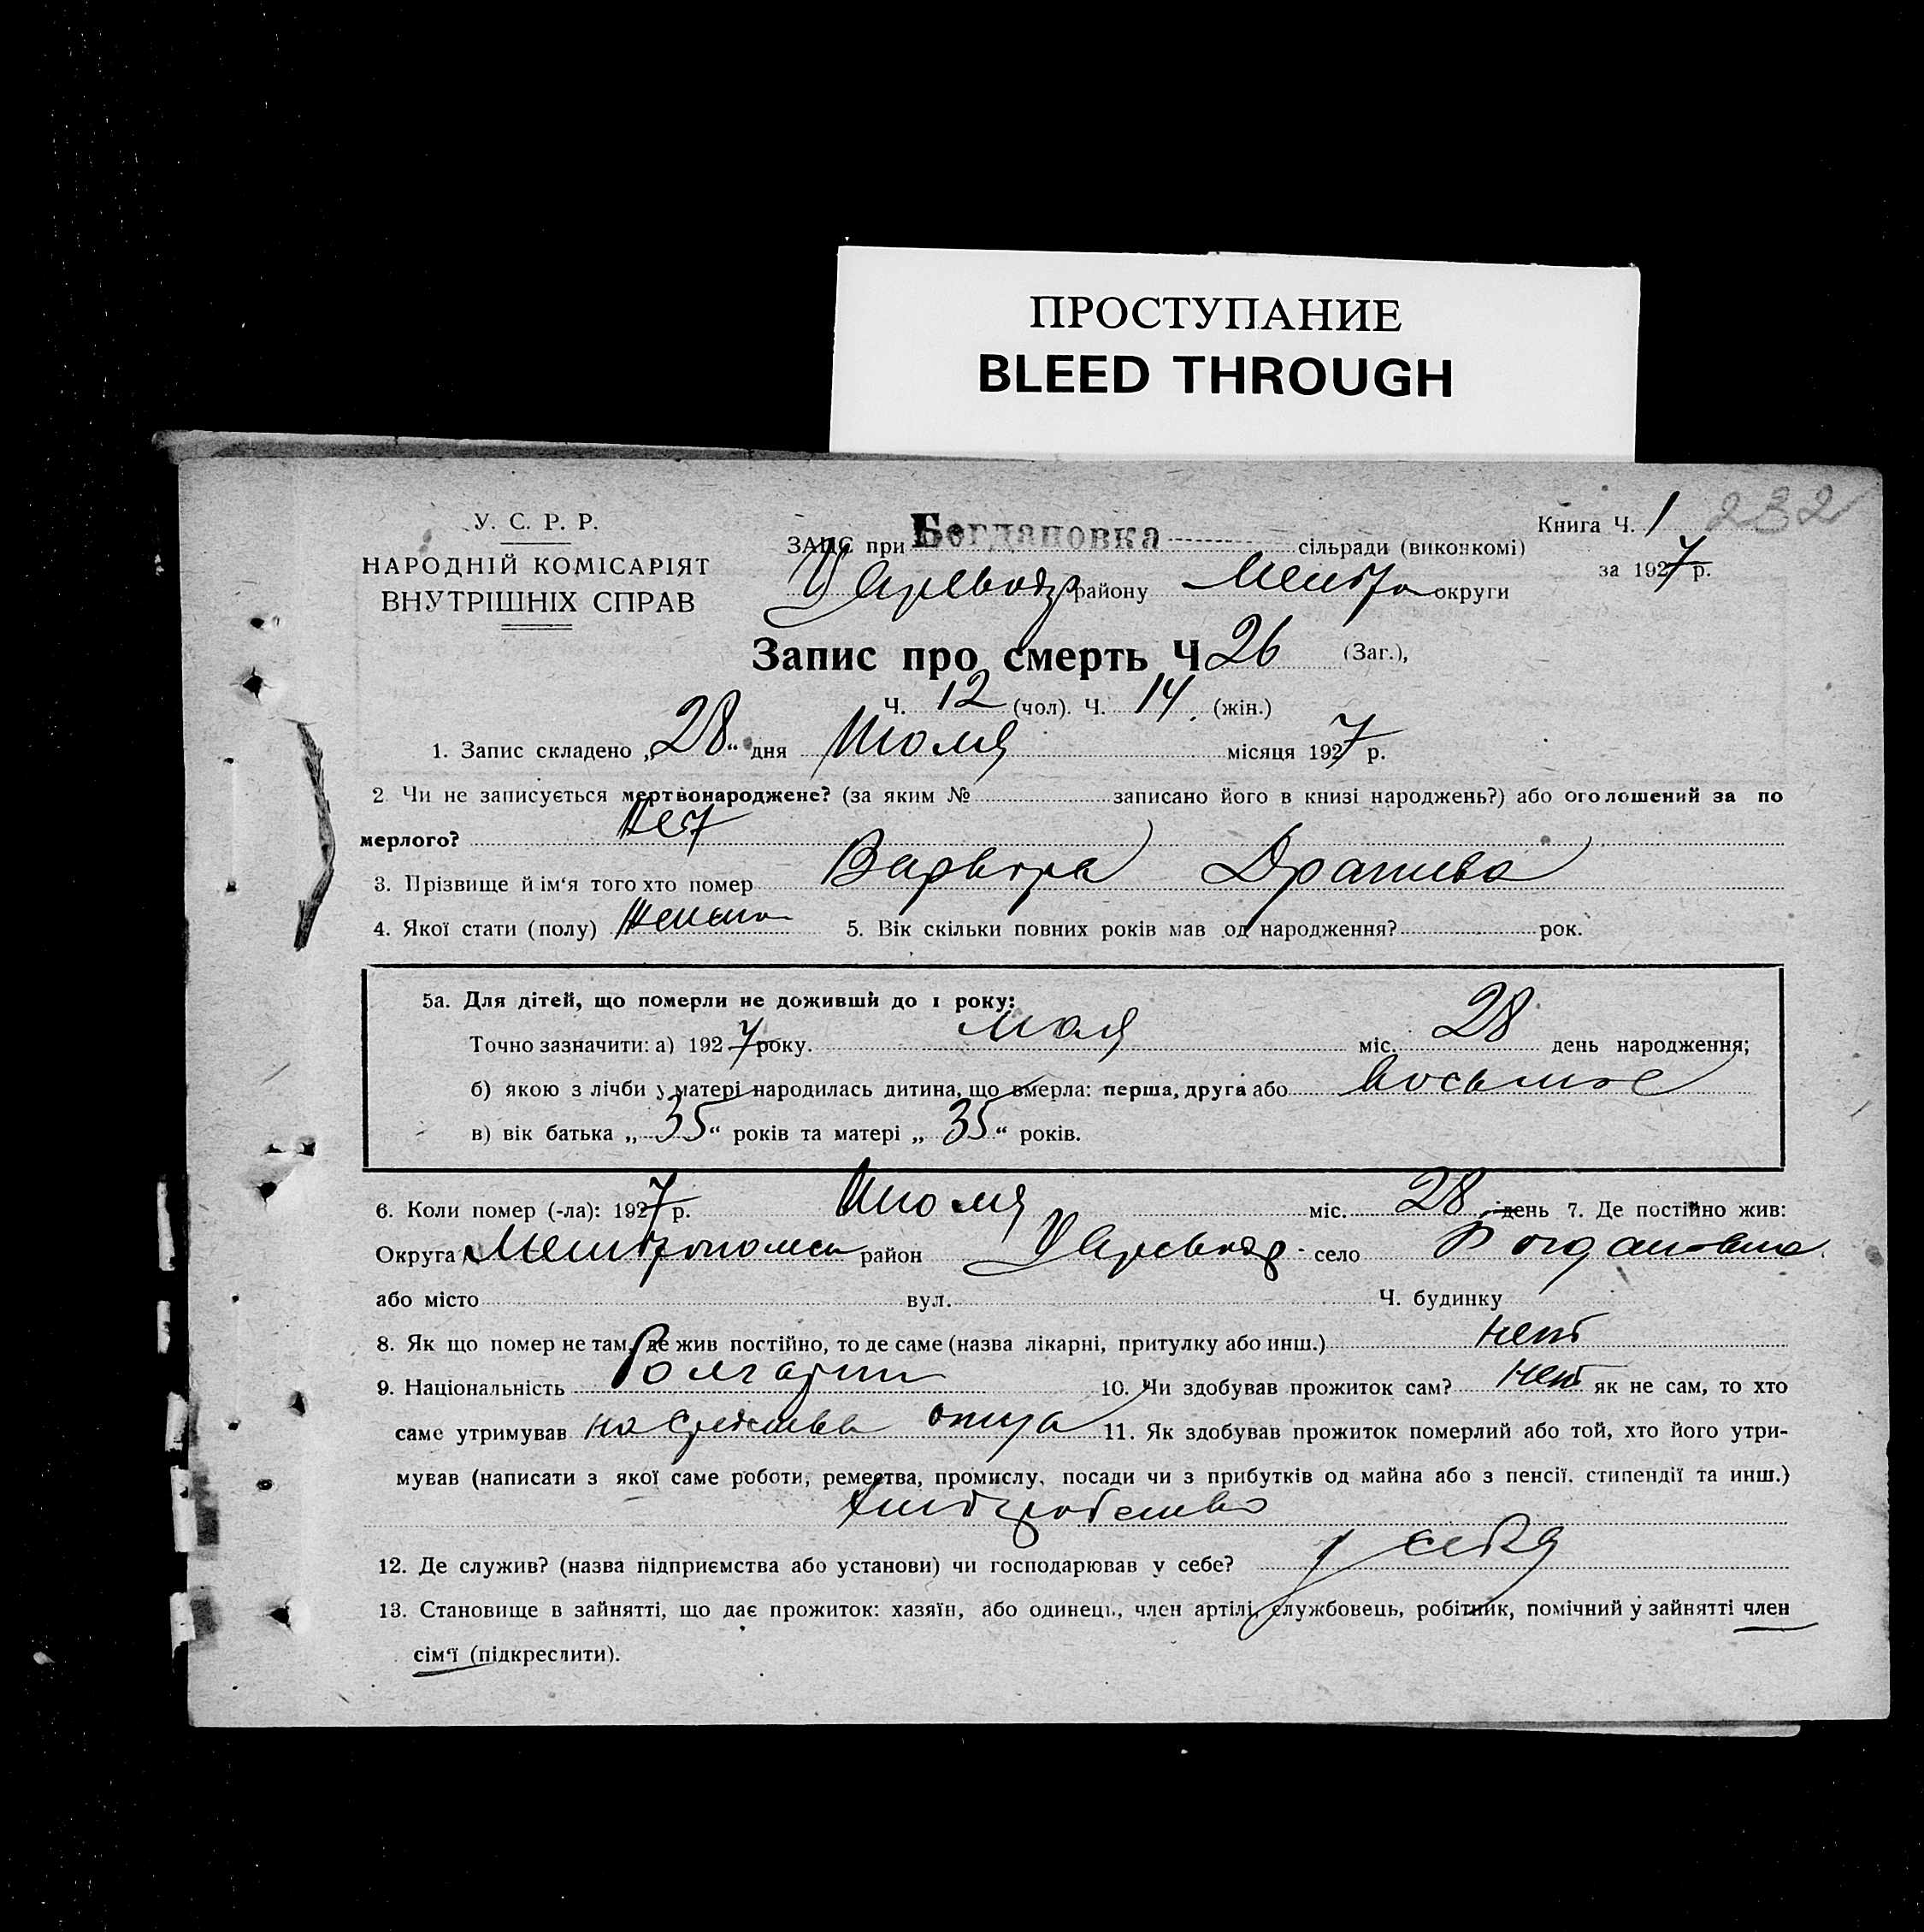 ПРОСТУПАНИЕ
BLEED THROUGH
У. С. Р. Р.
НАРОДНІЙ КОМІСАРІЯТ
ВНУТРІШНІХ СПРАВ
Книга Ч. 1 232
ЗАПИС при Богдановка сільради (виконкомі)
за 1927 р.
району округи
Запис про смерть Ч 26 (Заг.),
Ч. 12 (чол). Ч. 14 (жін.)
1. Запис складено „28“ дня Июля місяця 1927 р.
2 Чи не записується мертвонароджене? (за яким № записано його в книзі народжень?) або оголошений за по
мерлого? Нет
3. Прізвище й ім‘я того хто помер Варвара
4. Якої стати (полу) 5. Вік скільки повних років мав од народження? рок.
5а. Для дітей, що померли не доживши до 1 року:
Точно зазначити: а) 1927 року. мая міс. 28 день народження;
б) якою з лічби у матері народилась дитина, що вмерла: перша, друга або восьмое
в) вік батька „35“ років та матері „35“ років.
6. Коли помер (-ла): 1927 р. Июля міс. 28 день 7. Де постійно жив:
Округа район село Богдановка
або місто вул. Ч. будинку
8. Як що помер не там, де жив постійно, то де саме (назва лікарні, притулку або инш.) нет
9. Національність 10. Чи здобував прожиток сам? нет як не сам, то хто
саме утримував на отца 11. Як здобував прожиток померлий або той, хто його утри-
мував (написати з якої саме роботи, ремества, промислу, посади чи з прибутків од майна або з пенсії, стипендії та инш.)
12. Де служив? (назва підприємства або установи) чи господарював у себе? у себя
13. Становище в зайнятті, що дає прожиток: хазяїн, або одинець, член артілі, службовець, робітник, помічний у зайнятті член
сім‘ї (підкреслити).